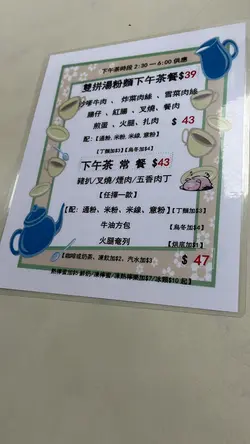 下午茶時段 2:30－6:00 供應
雙拼湯粉麵下午茶餐$39
沙嗲牛肉、炸菜肉絲、雪菜肉絲
腸仔、紅腸、叉燒、餐肉
煎蛋、火腿、扎肉 $ 43
配:【通粉、米粉、米線、意粉】
【丁麵加$3】【烏冬加$4】
下午茶 常 餐 $43
豬扒/叉燒/煙肉/五香肉丁
【任擇一款】
【配: 通粉、米粉、米線、意粉】【丁麵加$3】
牛油方包 【烏冬加$4】
火腿奄列 【烘底加$1】
【咖啡或奶茶、凍飲加$2、汽水加$3 $ 47